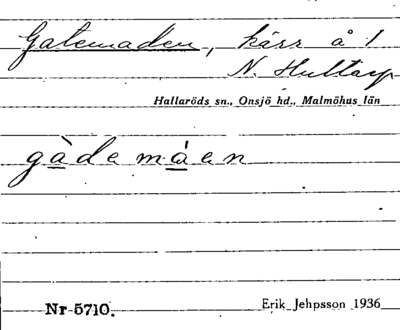 Gatemaden, kärr å 1
N. Hultarp
Hallaröds sn., Onsjö hd., Malmöhus län
gàdemáen
Nr 5710.
Erik Jehpsson 1936